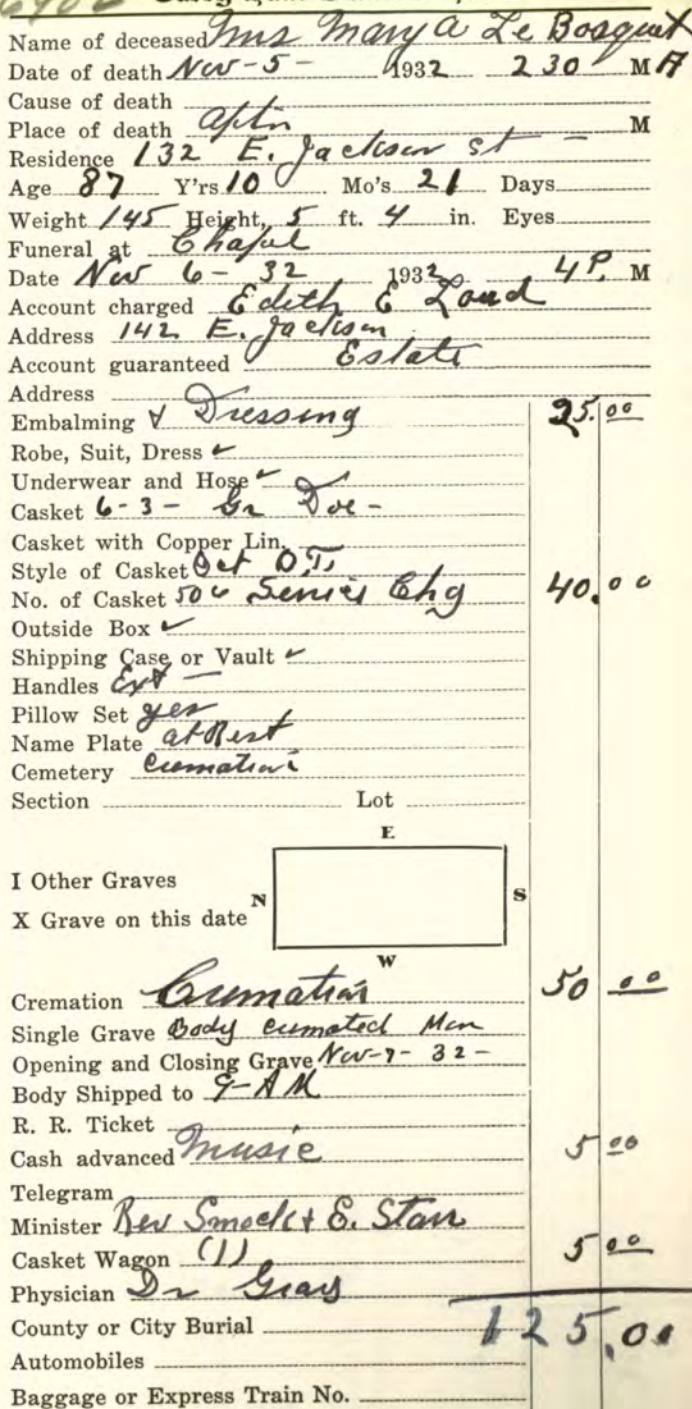 Name of deceased Mrs Mary A Le Bosquet
Date of death Nov - 5 - 1932 2 30 M A
Cause of death
Place of death M
Residence 132 E. Jackson St -
Age 87 Y'rs 10 Mo's 21 Days
Weight 145 Height, 5 ft. 4 in. Eyes
Funeral at Chapel
Date Nov 6 - 32 1932 4 P. M
Account charged Edith E Loud
Address 142 E. Jackson
Account guaranteed Estate
Address
Embalming & Dressing 25.00
Robe, Suit, Dress ✓
Underwear and Hose ✓
Casket 6 - 3 - Gr Doe -
Casket with Copper Lin.
Style of Casket Oct
No. of Casket Service Chg 40.00
Outside Box ✓
Shipping Case or Vault ✓
Handles Ext -
Pillow Set yes
Name Plate at Rest
Cemetery Cremation
Section Lot
E
I Other Graves
N S
X Grave on this date
W
Cremation Cremation 50 00
Single Grave Body cremated Mon
Opening and Closing Grave Nov - 7 - 32 -
Body Shipped to 9 - AM
R. R. Ticket
Cash advanced Music 5 00
Telegram
Minister Rev Smock & E. Starr
Casket Wagon (1) 5 00
Physician Dr Gray
County or City Burial 125.00
Automobiles
Baggage or Express Train No.